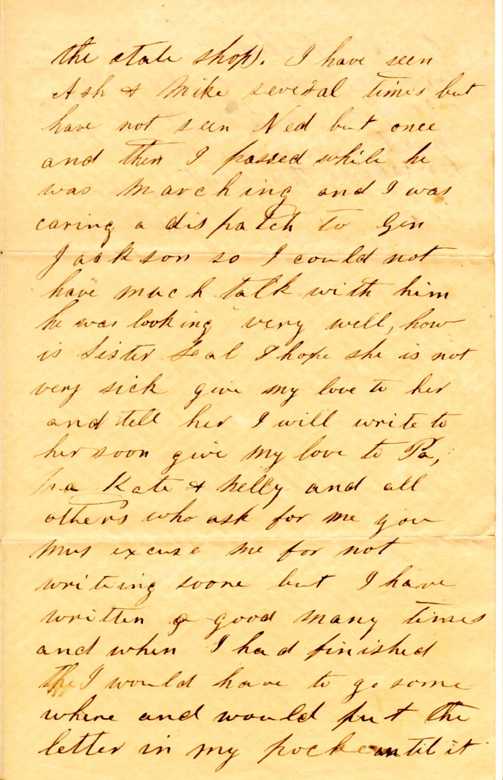 the state shop). I have seen
Ash & Mike several times but
have not seen Ned but once
and then I passed while he
was marching and I was
caring a dispatch to Gen
Jackson so I could not
have much talk with him
he was looking very well, how
is Sister Leal I hope she is not
very sick give my love to her
and tell her I will write to
her soon give my love to Pa,
Kate & Nelly and all
others who ask for me you
mus excuse me for not
writing soone but I have
written a good many times
and when I had finished
I would have to go some
where and would put the
letter in my pocke until it